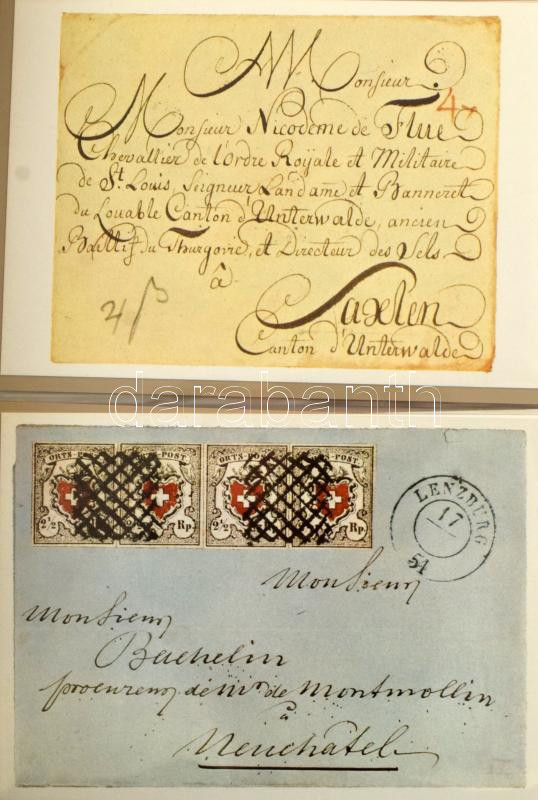 A Monsieur
4
Monsieur Nicodeme de Flue
Chevallier de l'Ordre Royale et Militaire
de St. Louis, Seigneur Landame et Banneret
du Louable Canton d'Unterwalde, ancien
Baillif du Thurgoire, et Directeur des Sels
à
Saxlen
Canton d'Unterwalde
darabanth
ORTS-POST ORTS-POST
2½ Rp. 2½ Rp.
LENZBURG
17
51
Monsieur
Monsieur
Bachelin
procureur de Mr de Montmollin
à
Neuchatel